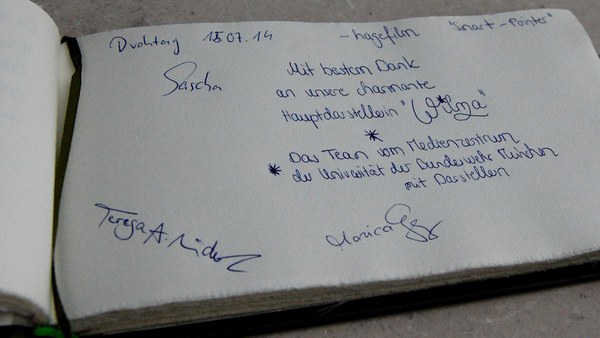 Drehtag 15.07.14 - Imagefilm "Smart - Pointer"
Sascha
Mit bestem Dank
an unsere charmante
Hauptdarstellerin "Wilma"
Das Team vom Medienzentrum
der Universität der Bundeswehr München
mit Darstellern
Teresa A.
Monica